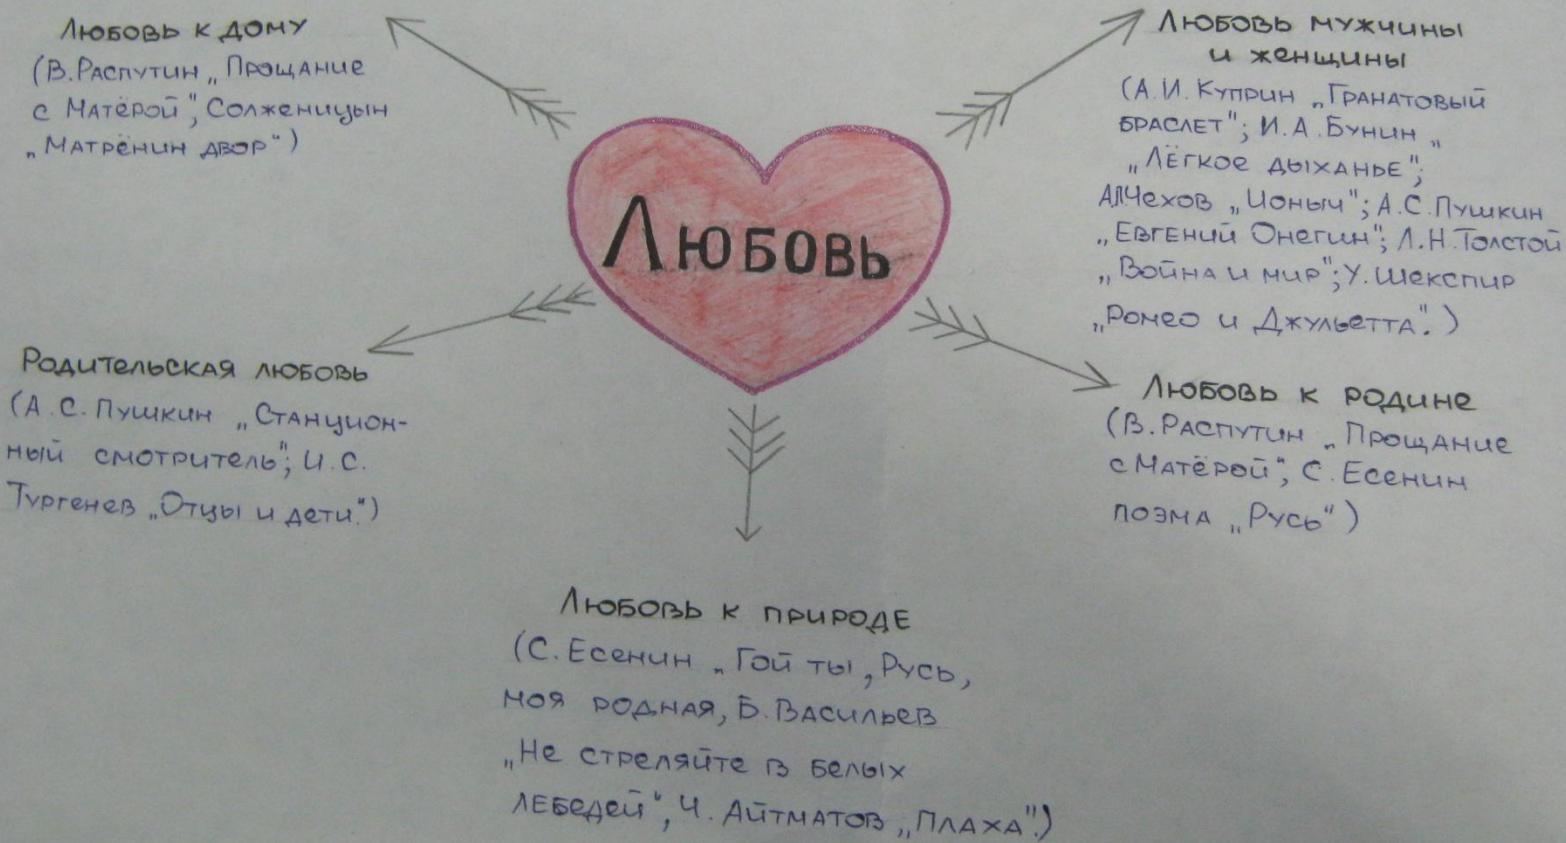 Любовь
Любовь к дому
(В. Распутин „Прощание
с Матёрой", Солженицын
„Матрёнин двор")
Любовь мужчины
и женщины
(А.И. Куприн „Гранатовый
браслет"; И.А. Бунин „
„Лёгкое дыханье";
АПЧехов „Ионыч"; А.С. Пушкин
„Евгений Онегин"; Л.Н. Толстой
„Война и мир"; У. Шекспир
„Ромео и Джульетта".)
Родительская любовь
(А.С. Пушкин „Станцион-
ный смотритель"; И.С.
Тургенев „Отцы и дети".)
Любовь к родине
(В. Распутин „Прощание
с Матёрой", С. Есенин
поэма „Русь")
Любовь к природе
(С. Есенин „Гой ты, Русь,
моя родная, Б. Васильев
„Не стреляйте в белых
лебедей", Ч. Айтматов „Плаха".)